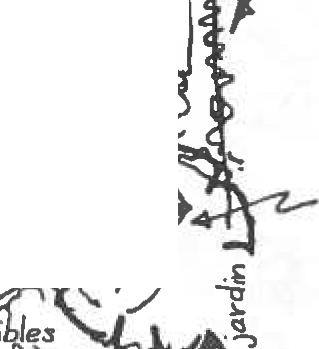 jardin
ibles